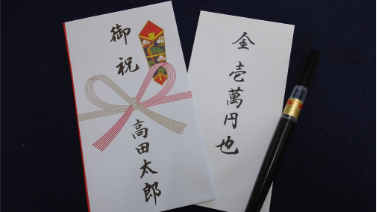 御祝
高田太郎
金壱萬円也